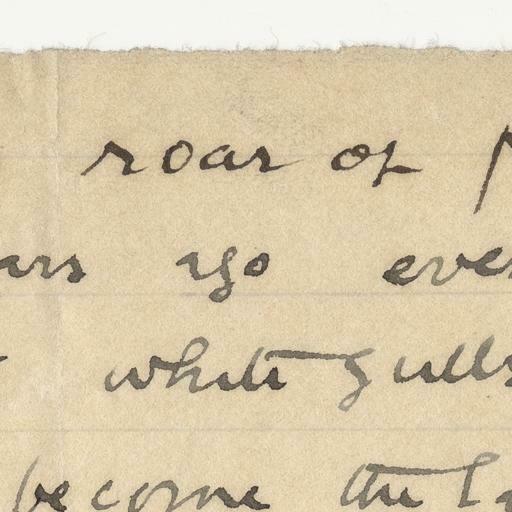 roar of
ago
white gulls
become the